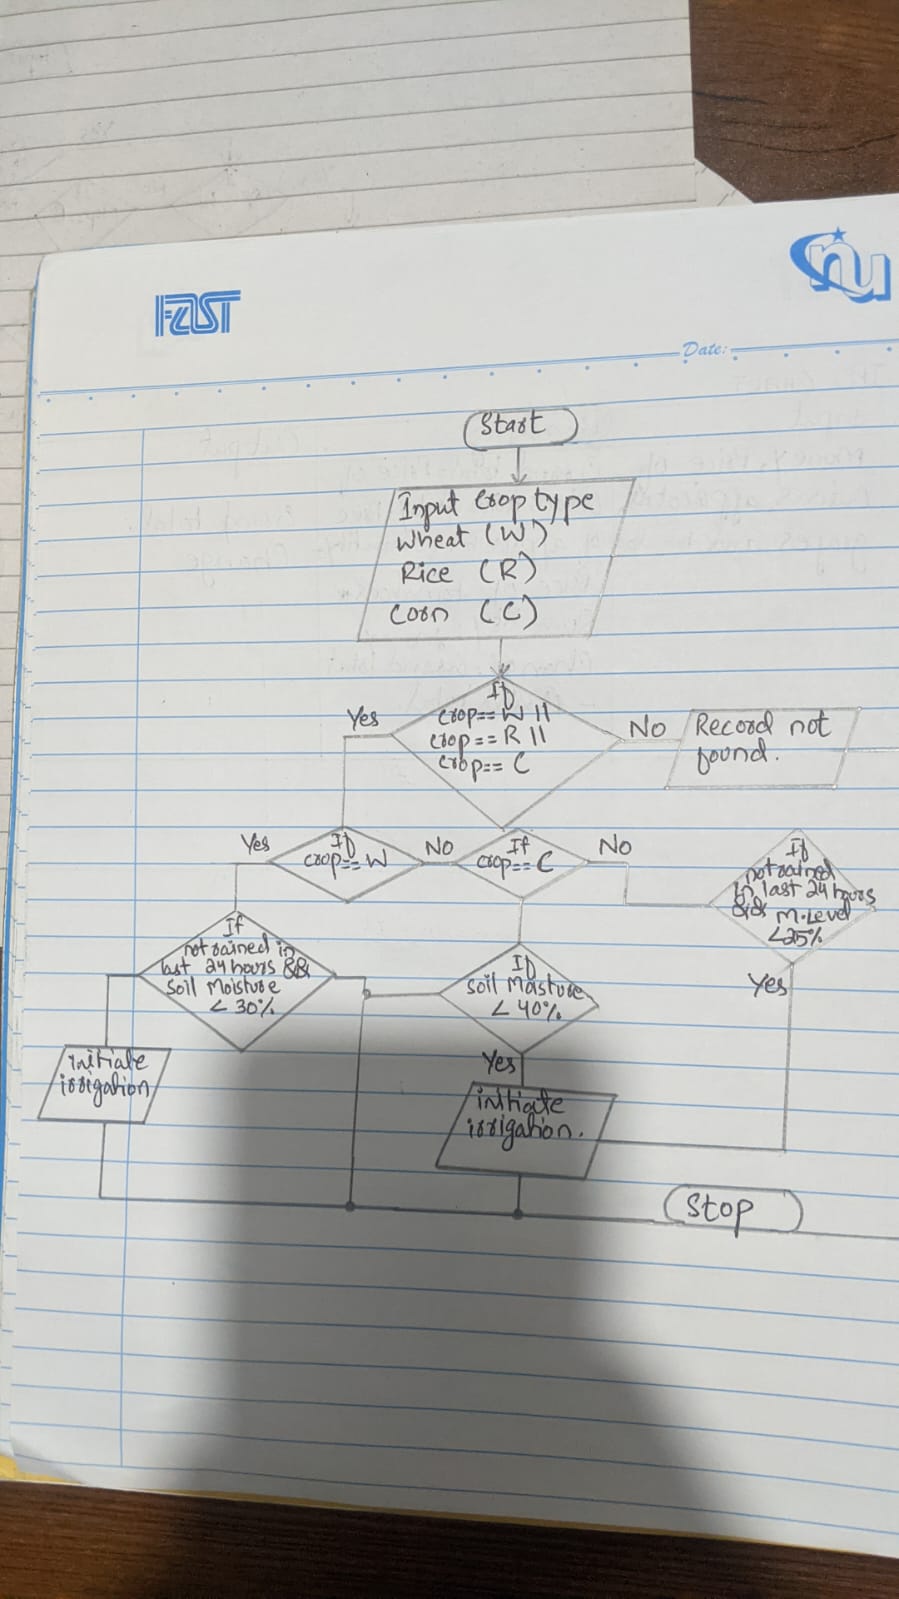 FAST
nu
Date:
Start
Input Crop type
Wheat (W)
Rice (R)
Corn (C)
If
crop== W ||
crop== R ||
crop== C
Yes
No
Record not
found.
Yes
If
crop== W
No
If
crop== C
No
If
not rained
in last 24 hours
&& M.Level
<25%
Yes
If
not rained in
last 24 hours &&
Soil Moisture
< 30%
If
Soil Masture
< 40%
Yes
initiate
irrigation
initiate
irrigation.
Stop